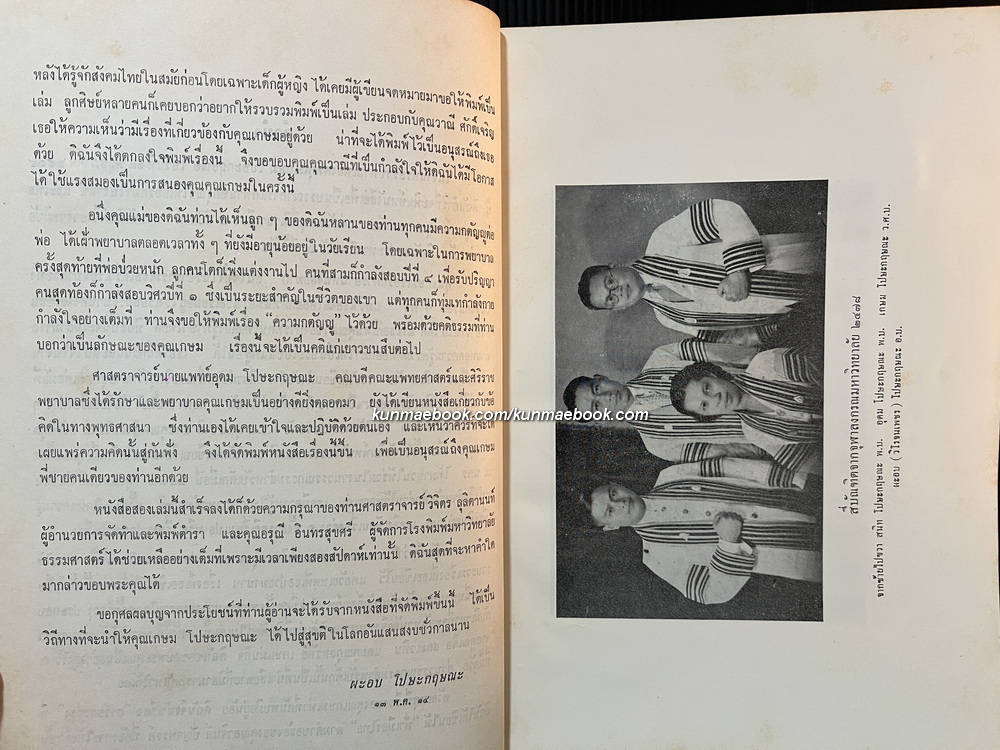 หลังได้รู้จักสังคมไทยในสมัยก่อนโดยเฉพาะเด็กผู้หญิง ได้เคยมีผู้เขียนจดหมายมาขอให้พิมพ์เป็น
เล่ม ลูกศิษย์หลายคนก็เคยบอกว่าอยากให้รวบรวมพิมพ์เป็นเล่ม ประกอบกับคุณวาณี ศักดิ์เจริญ
เธอให้ความเห็นว่ามีเรื่องที่เกี่ยวข้องกับคุณเกษมอยู่ด้วย น่าที่จะได้พิมพ์ไว้เป็นอนุสรณ์ถึงเธอ
ด้วย ดิฉันจึงได้ตกลงใจพิมพ์เรื่องนี้ จึงขอขอบคุณคุณวาณีที่เป็นกำลังใจให้ดิฉันได้มีโอกาส
ได้ใช้แรงสมองเป็นการสนองคุณคุณเกษมในครั้งนี้
อนึ่งคุณแม่ของดิฉันท่านได้เห็นลูก ๆ ของดิฉันหลานของท่านทุกคนมีความกตัญญูต่อ
พ่อ ได้เฝ้าพยาบาลตลอดเวลาทั้ง ๆ ที่ยังมีอายุน้อยอยู่ในวัยเรียน โดยเฉพาะในการพยาบาล
ครั้งสุดท้ายที่พ่อป่วยหนัก ลูกคนโตก็เพิ่งแต่งงานไป คนที่สามก็กำลังสอบปีที่ ๔ เพื่อรับปริญญา
คนสุดท้องก็กำลังสอบวิศวปีที่ ๑ ซึ่งเป็นระยะสำคัญในชีวิตของเขา แต่ทุกคนก็ทุ่มเทกำลังกาย
กำลังใจอย่างเต็มที่ ท่านจึงขอให้พิมพ์เรื่อง “ความกตัญญู” ไว้ด้วย พร้อมด้วยคติธรรมที่ท่าน
บอกว่าเป็นลักษณะของคุณเกษม เรื่องนี้จะได้เป็นคติแก่เยาวชนสืบต่อไป
ศาสตราจารย์นายแพทย์อุดม โปษะกฤษณะ คณบดีคณะแพทยศาสตร์และศิริราช
พยาบาลซึ่งได้รักษาและพยาบาลคุณเกษมเป็นอย่างดียิ่งตลอดมา ยังได้เขียนหนังสือเกี่ยวกับข้อ
คิดในทางพุทธศาสนา ซึ่งท่านเองได้เคยเข้าใจและปฏิบัติด้วยตนเอง และเห็นว่าควรที่จะได้
เผยแพร่ความคิดนั้นสู่กันฟัง จึงได้จัดพิมพ์หนังสือเรื่องนี้ขึ้น เพื่อเป็นอนุสรณ์ถึงคุณเกษม
พี่ชายคนเดียวของท่านอีกด้วย
หนังสือสองเล่มนี้สำเร็จลงได้ก็ด้วยความกรุณาของท่านศาสตราจารย์ วิจิตร ลุลิตานนท์
ผู้อำนวยการจัดทำและพิมพ์ตำรา และคุณอรุณี อินทรสุขศรี ผู้จัดการโรงพิมพ์มหาวิทยาลัย
ธรรมศาสตร์ ได้ช่วยเหลืออย่างเต็มที่เพราะมีเวลาเพียงสองสัปดาห์เท่านั้น ดิฉันสุดที่จะหาคำใด
มากล่าวขอบพระคุณได้
ขอกุศลผลบุญจากประโยชน์ที่ท่านผู้อ่านจะได้รับจากหนังสือที่จัดพิมพ์ขึ้นนี้ ได้เป็น
วิถีทางที่จะนำให้คุณเกษม โปษะกฤษณะ ได้ไปสู่สุขติในโลกอันแสนสงบชั่วกาลนาน
ผะอบ โปษะกฤษณะ
๑๓ พ.ค. ๑๔
kunmaebook.com/kunmaebook.com
สี่บัณฑิตจากจุฬาลงกรณมหาวิทยาลัย ๒๔๗๘
จากซ้ายไปขวา สนิท โปษะกฤษณะ พ.บ. อุดม โปษะกฤษณะ พ.บ. เกษม โปษะกฤษณะ ว.ศ.บ.
ผะอบ (วิโรจนเพชร) โปษะกฤษณะ อ.บ.